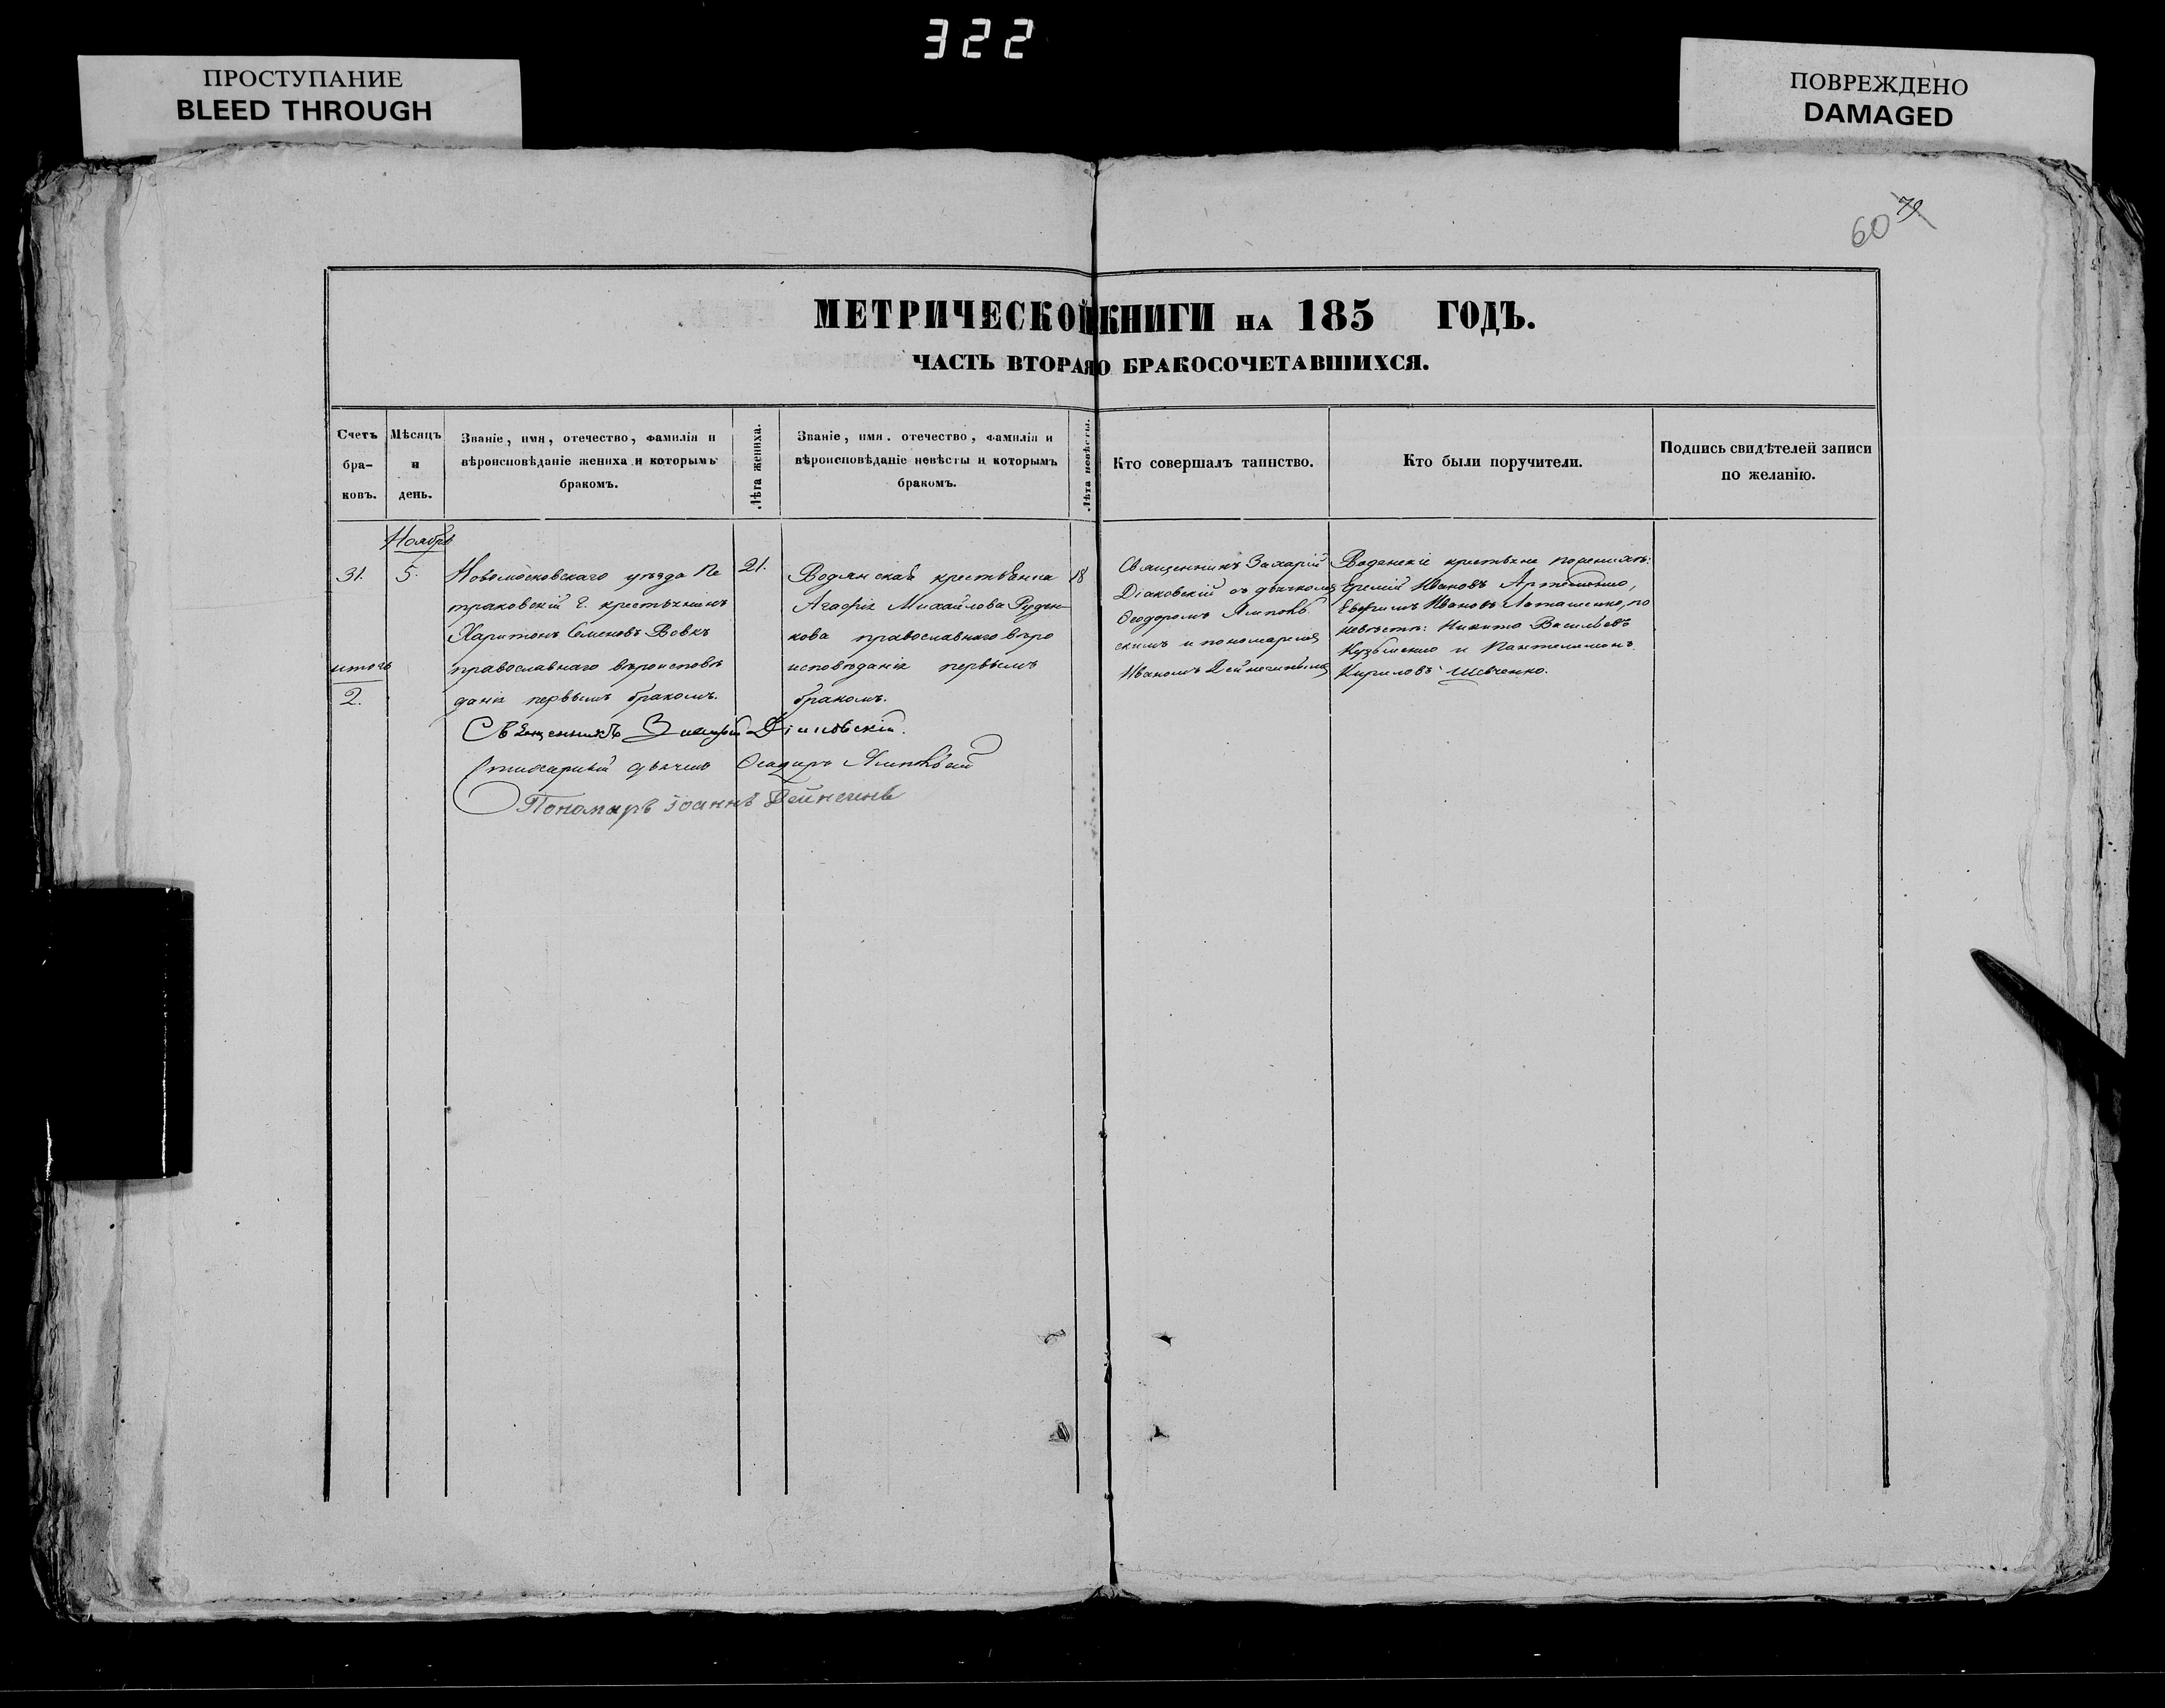 322
ПРОСТУПАНИЕ
BLEED THROUGH
ПОВРЕЖДЕНО
DAMAGED
60 79
МЕТРИЧЕСКОЙ КНИГИ НА 185 ГОДЪ.
ЧАСТЬ ВТОРАЯ О БРАКОСОЧЕТАВШИХСЯ.
Счетъ
бра-
ковъ.
Мѣсяцъ
и
день.
Званіе, имя, отечество, фамилія и
вѣроисповѣданіе жениха и которымъ
бракомъ.
Лѣта жениха.
Званіе, имя. отечество, фамилія и
вѣроисповѣданіе невѣсты и которымъ
бракомъ.
Лѣта невѣсты.
Кто совершалъ таинство.
Кто были поручители.
Подпись свидѣтелей записи
по желанію.
31.
итогъ
2.
Ноябрь
5.
Новомосковскаго уѣзда Пе
траковскій Г. крестьянинъ
Харитонъ Семеновъ Вовкъ
православнаго вѣроисповѣ
данія первымъ бракомъ.
21.
Водянская крестьянка
Агафія Михайлова Рудън
кова православнаго вѣро
исповѣданія первымъ
бракомъ.
18
Священникъ Захарій
Діаковскій съ дьячкомъ
Ѳеодоромъ Ямпольв
скимъ и пономаремъ
Иваномъ Дейнечинымъ
Водянскіе крестьяне по женихѣ:
Еремій Ивановъ Артеменко,
Евфимъ Ивановъ Латашенко, по
невѣстѣ: Никита Васильевъ
Кузьменко и Пантелимонъ
Кириловъ Шевченко.
Священникъ Захарій Діаковскій.
Стихарный дьячекъ Ѳеодоръ
Пономарь Іоаннъ Дейнечинъ